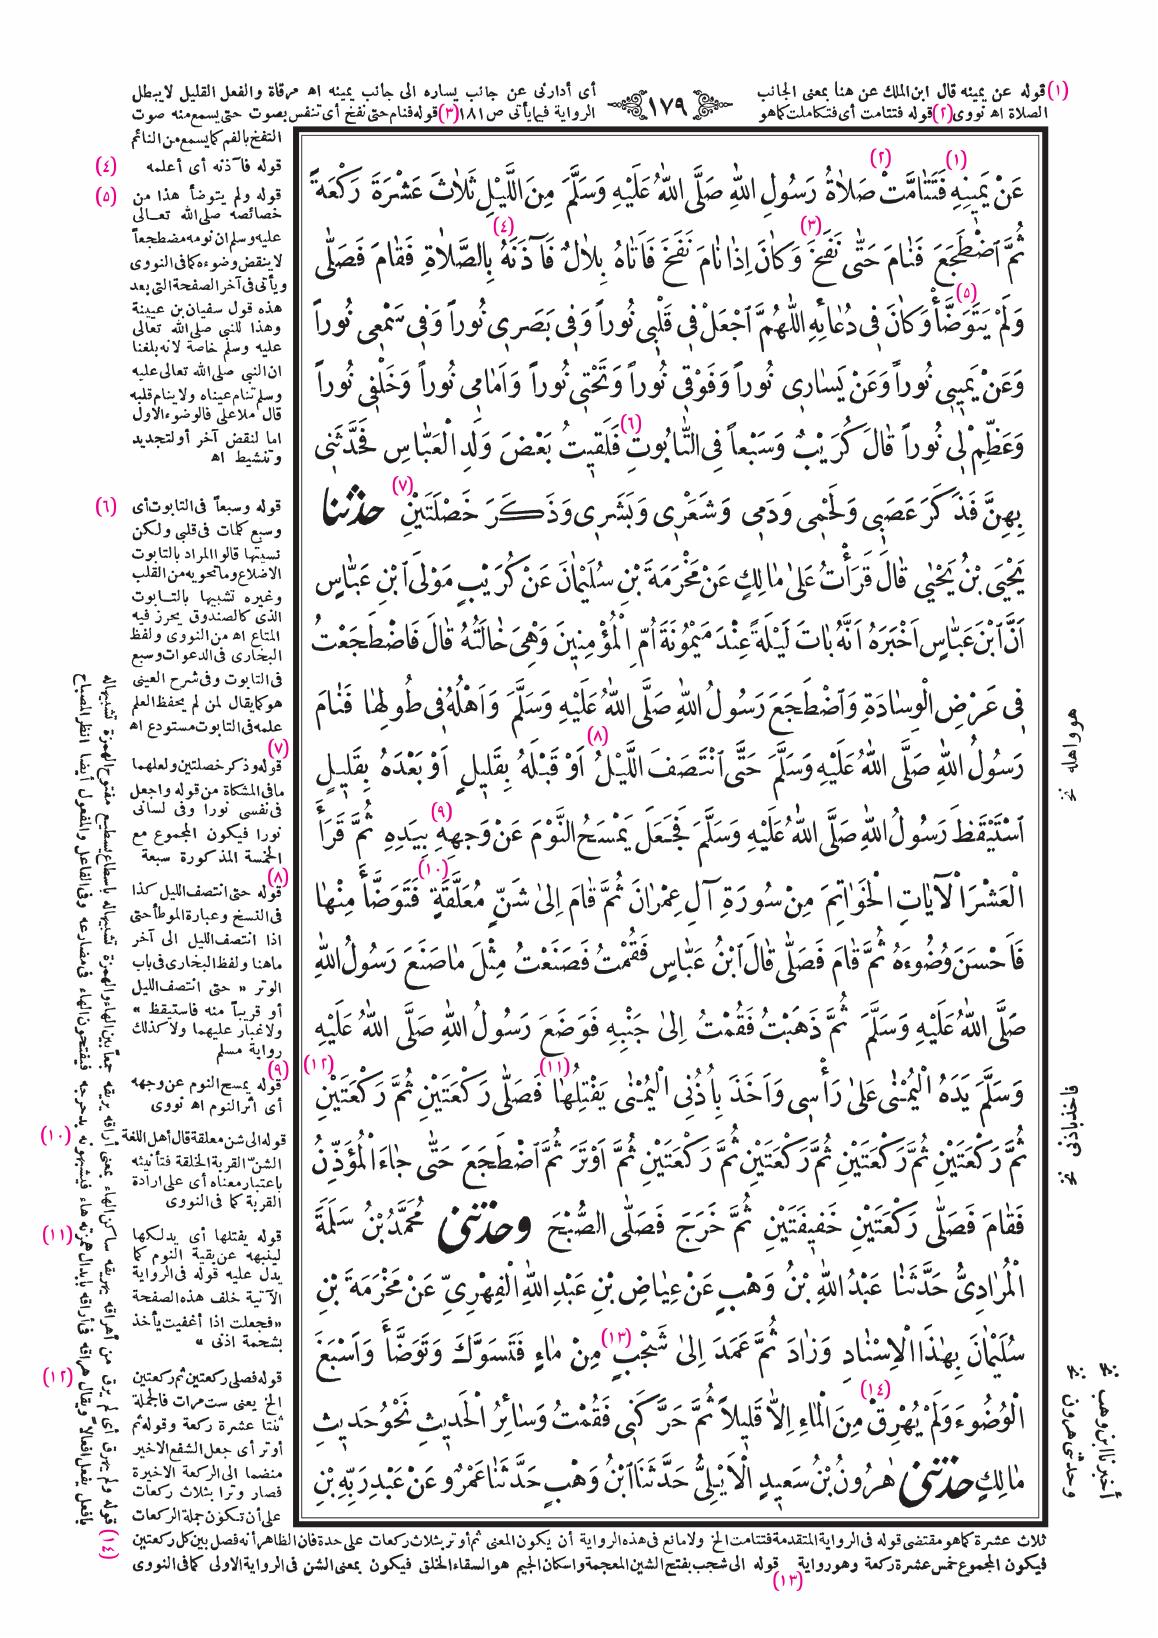 (١) قوله عن يمينه قال ابن الملك عن هنا بمعنى الجانب
أى أدارنى عن جانب يساره الى جانب يمينه اه مرقاة والفعل القليل لايبطل
١٧٩
الصلاة اه نووى (٢) قوله فتتامت أى فتكاملت كماهو
الرواية فيما يأتى ص ١٨١ (٣) قوله فنام حتى نفخ أى تنفس بصوت حتى يسمع منه صوت
النفخ بالفم كما يسمع من النائم
(١) (٢)
عَنْ يَمِينِهِ فَتَتَامَّتْ صَلَاةُ رَسُولِ اللّٰهِ صَلَّى اللّٰهُ عَلَيْهِ وَسَلَّمَ مِنَ اللَّيْلِ ثَلَاثَ عَشْرَةَ رَكْعَةً
(٣) (٤)
ثُمَّ اضْطَجَعَ فَنَامَ حَتّٰى نَفَخَ وَكَانَ اِذَا نَامَ نَفَخَ فَاَتَاهُ بِلَالٌ فَآذَنَهُ بِالصَّلَاةِ فَقَامَ فَصَلّٰى
(٥)
وَلَمْ يَتَوَضَّأْ وَكَانَ فِى دُعَائِهِ اللّٰهُمَّ اجْعَلْ فِى قَلْبِى نُوراً وَفِى بَصَرِى نُوراً وَفِى سَمْعِى نُوراً
وَعَنْ يَمِينِى نُوراً وَعَنْ يَسَارِى نُوراً وَفَوْقِى نُوراً وَتَحْتِى نُوراً وَاَمَامِى نُوراً وَخَلْفِى نُوراً
(٦)
وَعَظِّمْ لِى نُوراً قَالَ كُرَيْبٌ وَسَبْعاً فِى التَّابُوتِ فَلَقِيتُ بَعْضَ وَلَدِ الْعَبَّاسِ فَحَدَّثَنِى
(٧)
بِهِنَّ فَذَكَرَ عَصَبِى وَلَحْمِى وَدَمِى وَشَعْرِى وَبَشَرِى وَذَكَرَ خَصْلَتَيْنِ حدثنا
يَحْيَى بْنُ يَحْيٰى قَالَ قَرَأْتُ عَلىٰ مَالِكٍ عَنْ مَخْرَمَةَ بْنِ سُلَيْمَانَ عَنْ كُرَيْبٍ مَوْلَى ابْنِ عَبَّاسٍ
اَنَّ ابْنَ عَبَّاسٍ اَخْبَرَهُ اَنَّهُ بَاتَ لَيْلَةً عِنْدَ مَيْمُونَةَ اُمِّ الْمُؤْمِنِينَ وَهِىَ خَالَتُهُ قَالَ فَاضْطَجَعْتُ
فِى عَرْضِ الْوِسَادَةِ وَاضْطَجَعَ رَسُولُ اللّٰهِ صَلَّى اللّٰهُ عَلَيْهِ وَسَلَّمَ وَاَهْلُهُ فِى طُولِهَا فَنَامَ
(٨)
رَسُولُ اللّٰهِ صَلَّى اللّٰهُ عَلَيْهِ وَسَلَّمَ حَتَّى انْتَصَفَ اللَّيْلُ اَوْ قَبْلَهُ بِقَلِيلٍ اَوْ بَعْدَهُ بِقَلِيلٍ
(٩)
اسْتَيْقَظَ رَسُولُ اللّٰهِ صَلَّى اللّٰهُ عَلَيْهِ وَسَلَّمَ فَجَعَلَ يَمْسَحُ النَّوْمَ عَنْ وَجْهِهِ بِيَدِهِ ثُمَّ قَرَأَ
(١٠)
الْعَشْرَ الْآيَاتِ الْخَوَاتِمَ مِنْ سُورَةِ آلِ عِمْرَانَ ثُمَّ قَامَ اِلىٰ شَنٍّ مُعَلَّقَةٍ فَتَوَضَّأَ مِنْهَا
فَاَحْسَنَ وُضُوءَهُ ثُمَّ قَامَ فَصَلّٰى قَالَ ابْنُ عَبَّاسٍ فَقُمْتُ فَصَنَعْتُ مِثْلَ مَا صَنَعَ رَسُولُ اللّٰهِ
صَلَّى اللّٰهُ عَلَيْهِ وَسَلَّمَ ثُمَّ ذَهَبْتُ فَقُمْتُ اِلىٰ جَنْبِهِ فَوَضَعَ رَسُولُ اللّٰهِ صَلَّى اللّٰهُ عَلَيْهِ
(١١) (١٢)
وَسَلَّمَ يَدَهُ الْيُمْنٰى عَلىٰ رَأْسِى وَاَخَذَ بِاُذُنِى الْيُمْنٰى يَفْتِلُهَا فَصَلّٰى رَكْعَتَيْنِ ثُمَّ رَكْعَتَيْنِ
ثُمَّ رَكْعَتَيْنِ ثُمَّ رَكْعَتَيْنِ ثُمَّ رَكْعَتَيْنِ ثُمَّ رَكْعَتَيْنِ ثُمَّ اَوْتَرَ ثُمَّ اضْطَجَعَ حَتّٰى جَاءَ الْمُؤَذِّنُ
فَقَامَ فَصَلّٰى رَكْعَتَيْنِ خَفِيفَتَيْنِ ثُمَّ خَرَجَ فَصَلَّى الصُّبْحَ وحدثنى مُحَمَّدُ بْنُ سَلَمَةَ
الْمُرَادِىُّ حَدَّثَنَا عَبْدُ اللّٰهِ بْنُ وَهْبٍ عَنْ عِيَاضِ بْنِ عَبْدِ اللّٰهِ الْفِهْرِىِّ عَنْ مَخْرَمَةَ بْنِ
(١٣)
سُلَيْمَانَ بِهٰذَا الْاِسْنَادِ وَزَادَ ثُمَّ عَمَدَ اِلىٰ شَجْبٍ مِنْ مَاءٍ فَتَسَوَّكَ وَتَوَضَّأَ وَاَسْبَغَ
(١٤)
الْوُضُوءَ وَلَمْ يُهْرِقْ مِنَ الْمَاءِ اِلَّا قَلِيلاً ثُمَّ حَرَّكَنِى فَقُمْتُ وَسَائِرُ الْحَدِيثِ نَحْوُ حَدِيثِ
مَالِكٍ حدثنى هٰرُونُ بْنُ سَعِيدٍ الْاَيْلِىُّ حَدَّثَنَا ابْنُ وَهْبٍ حَدَّثَنَا عَمْرٌو عَنْ عَبْدِ رَبِّهِ بْنِ
(٤) قوله فآذنه أى أعلمه
(٥) قوله ولم يتوضأ هذا من
خصائصه صلى الله تعالى
عليه وسلم ان نومه مضطجعاً
لا ينقض وضوءه كما فى النووى
ويأتى فى آخر الصفحة التى بعد
هذه قول سفيان بن عيينة
وهذا للنبى صلى الله تعالى
عليه وسلم خاصة لانه بلغنا
ان النبى صلى الله تعالى عليه
وسلم تنام عيناه ولا ينام قلبه
قال ملا على فالوضوء الاول
اما لنقض آخر أو لتجديد
وتنشيط اه
(٦) قوله وسبعاً فى التابوت أى
وسبع كلمات فى قلبى ولكن
نسيتها قالوا المراد بالتابوت
الاضلاع وما تحويه من القلب
وغيره تشبيها بالتابوت
الذى كالصندوق يحرز فيه
المتاع اه من النووى ولفظ
البخارى فى الدعوات وسبع
فى التابوت وفى شرح العينى
هو كما يقال لمن لم يحفظ العلم
علمه فى التابوت مستودع اه
(٧)
قوله وذكر خصلتين ولعلهما
ما فى المشكاة من قوله واجعل
فى نفسى نورا وفى لسانى
نورا فيكون المجموع مع
الخمسة المذكورة سبعة
(٨)
قوله حتى انتصف الليل كذا
فى النسخ وعبارة الموطأ حتى
اذا انتصف الليل الى آخر
ما هنا ولفظ البخارى فى باب
الوتر « حتى انتصف الليل
أو قريباً منه فاستيقظ »
ولا غبار عليهما ولا كذلك
رواية مسلم
(٩)
قوله يمسح النوم عن وجهه
أى اثر النوم اه نووى
(١٠) قوله الى شن معلقة قال أهل اللغة
الشنّ القربة الخلقة فتأنيثه
باعتبار معناه أى على ارادة
القربة كما فى النووى
(١١) قوله يفتلها أى يدلكها
لينبهه عن بقية النوم كما
يدل عليه قوله فى الرواية
الآتية خلف هذه الصفحة
«فجعلت اذا أغفيت يأخذ
بشحمة اذنى »
(١٢) قوله فصلى ركعتين ثم ركعتين
الخ يعنى ست مرات فالجملة
ثنتا عشرة ركعة وقوله ثم
أوتر أى جعل الشفع الاخير
منضما الى الركعة الاخيرة
فصار وترا بثلاث ركعات
على أن تكون جملة الركعات
ثلاث عشرة كما هو مقتضى قوله فى الرواية المتقدمة فتتامت الخ ولا مانع فى هذه الرواية أن يكون المعنى ثم أوتر بثلاث ركعات على حدة فان الظاهر أنه فصل بين كل ركعتين
فيكون المجموع خمس عشرة ركعة وهو رواية قوله الى شجب بفتح الشين المعجمة واسكان الجيم هو السقاء الخلق فيكون بمعنى الشن فى الرواية الاولى كما فى النووى
(١٣)
(١٤)
هو واهله نخ
فاخذ باذنى نخ
أخبرنا ابن وهب نخ
وحدثنى هرون نخ